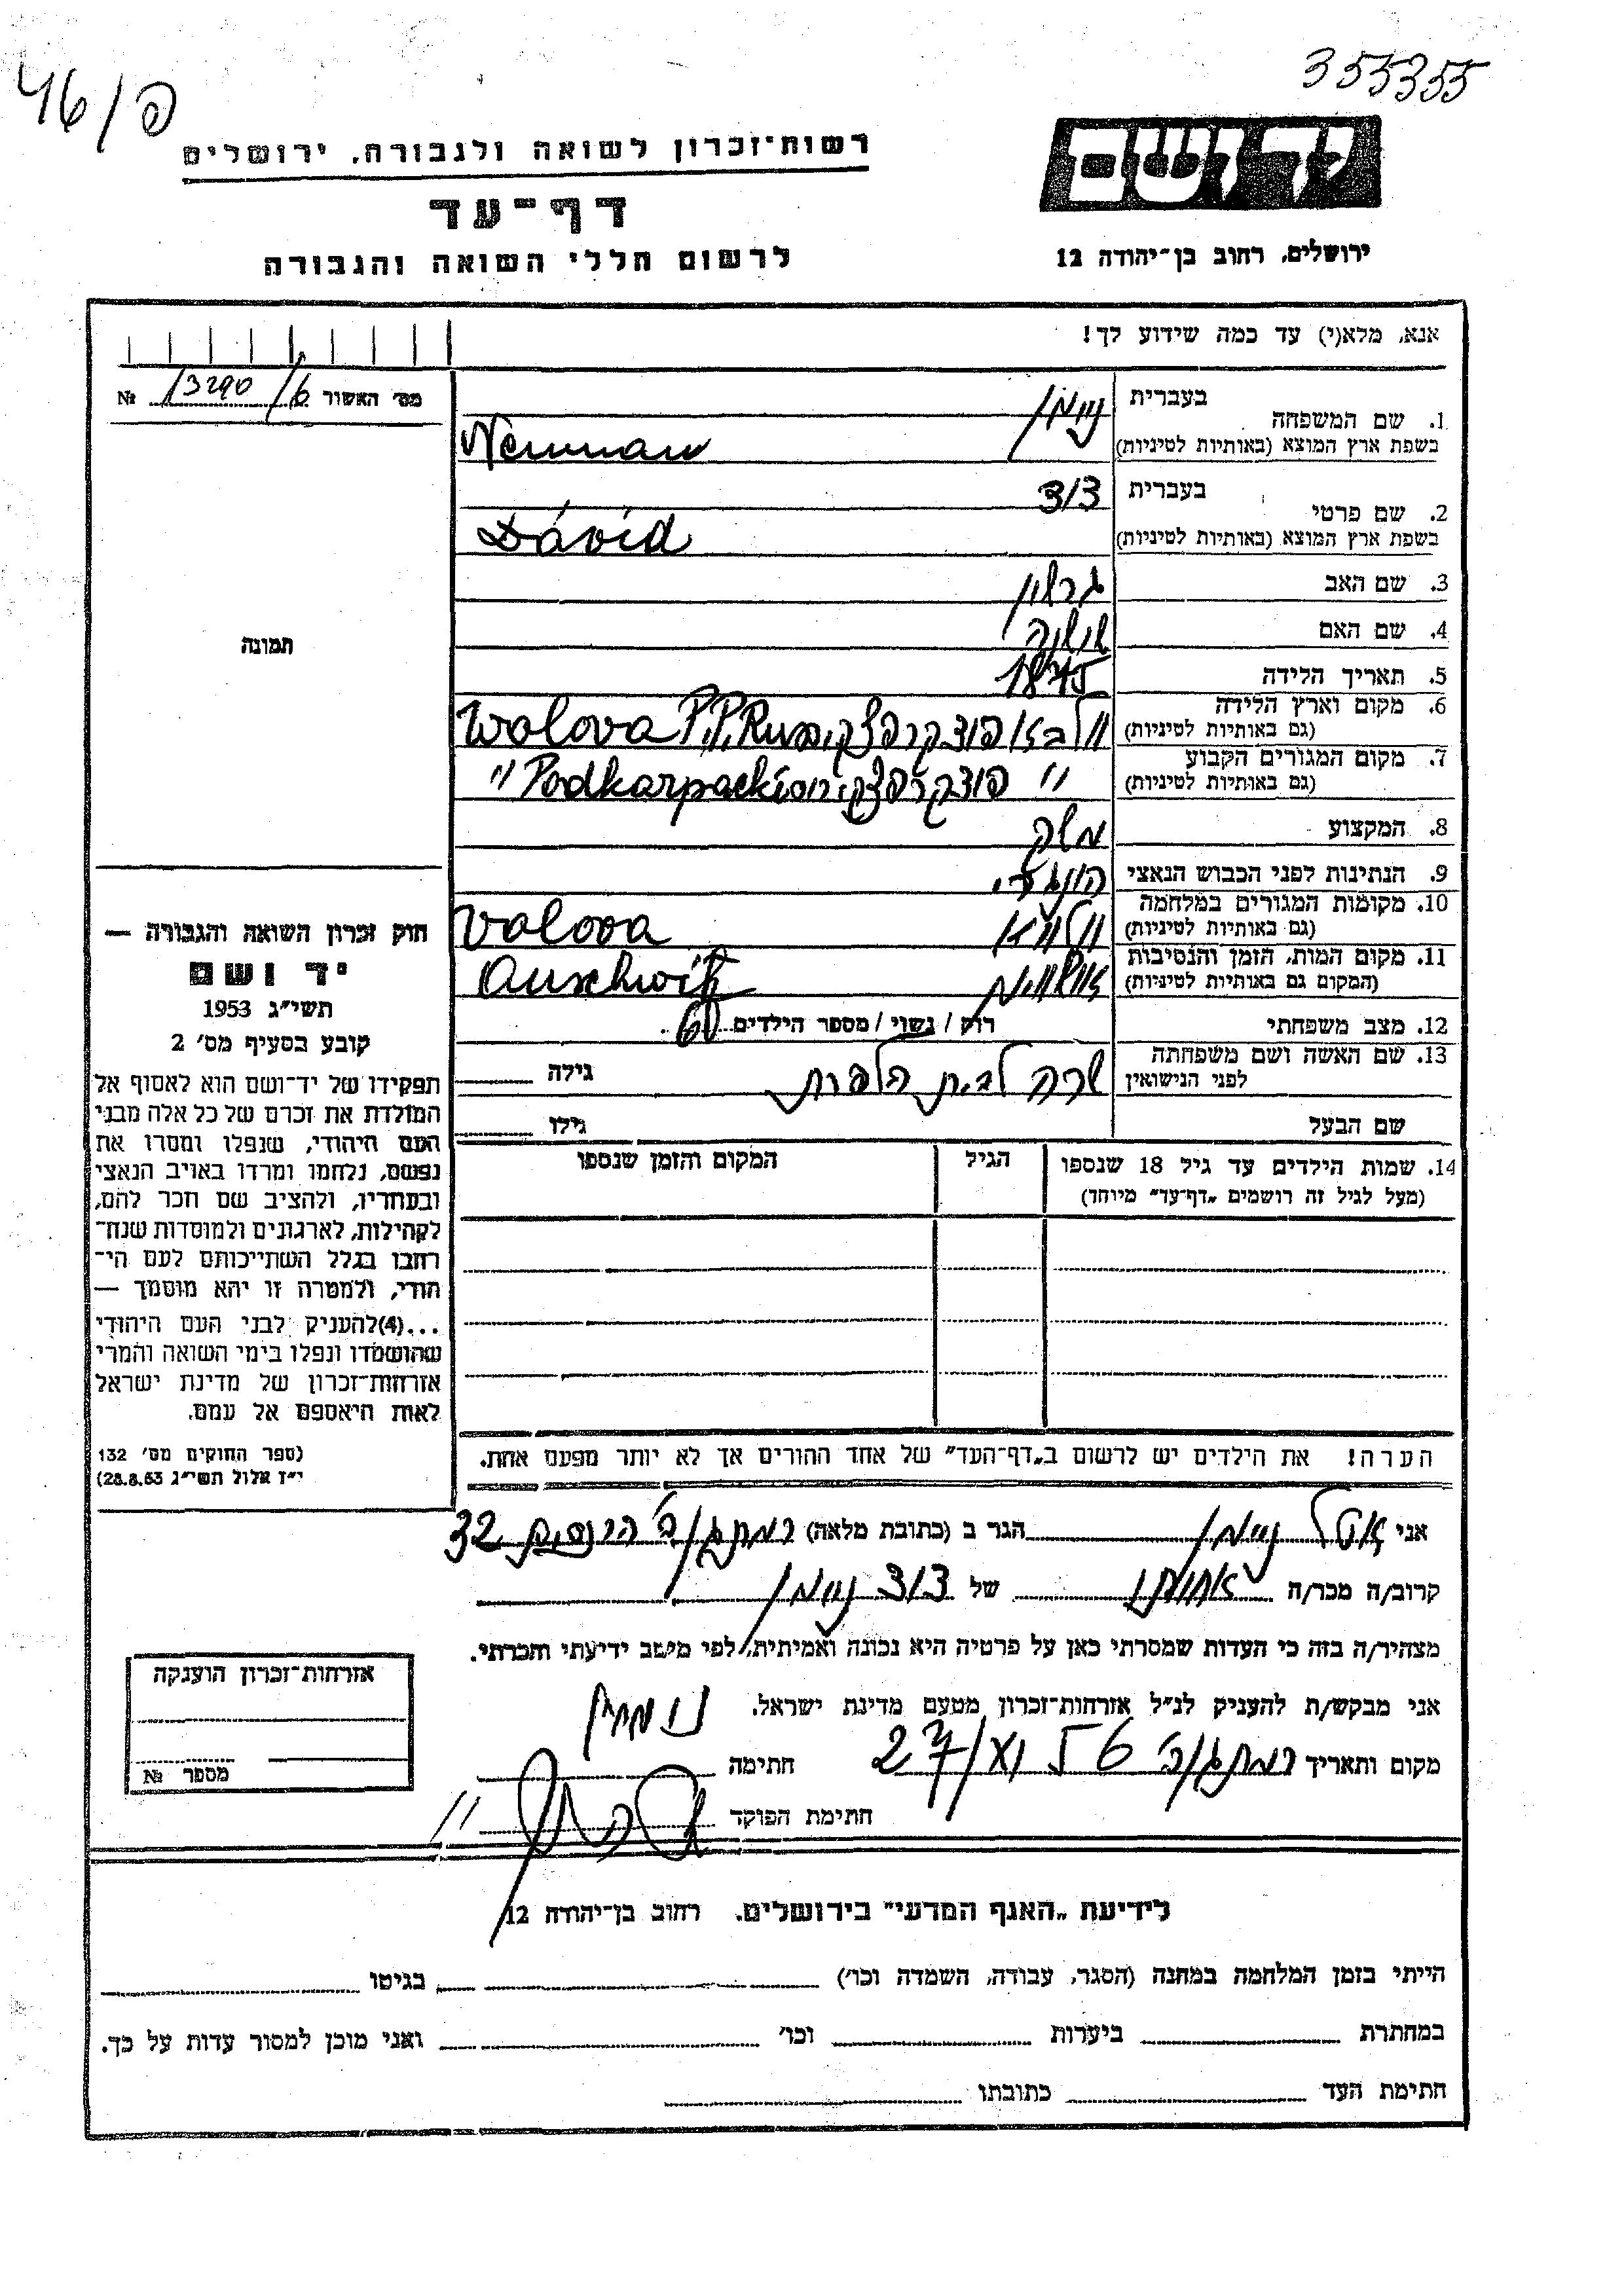 355355
פ/46
יד ושם
רשות־זכרון לשואה ולגבורה, ירושלים
דף־עד
ירושלים, רחוב בן־יהודה 12
לרשום חללי השואה והגבורה
אנא, מלא(י) עד כמה שידוע לך!
מס׳ האשור 13290/6 №
1. שם המשפחה
בעברית ניימן
בשפת ארץ המוצא (באותיות לטיניות) Neuman
2. שם פרטי
בעברית דוד
בשפת ארץ המוצא (באותיות לטיניות) Dávid
3. שם האב
4. שם האם
5. תאריך הלידה 1875
6. מקום וארץ הלידה
(גם באותיות לטיניות) Wolova P.P.Rus
7. מקום המגורים הקבוע
(גם באותיות לטיניות) " Podkarpacki
8. המקצוע
9. הנתינות לפני הכבוש הנאצי
10. מקומות המגורים במלחמה
(גם באותיות לטיניות) Volova
11. מקום המות, הזמן והנסיבות
(המקום גם באותיות לטיניות) Auschwitz
12. מצב משפחתי רוק / נשוי / מספר הילדים
13. שם האשה ושם משפחתה
לפני הנישואין שרה לבית גילה
שם הבעל גילו
14. שמות הילדים עד גיל 18 שנספו הגיל המקום והזמן שנספו
(מעל לגיל זה רושמים „דף־עד״ מיוחד)
הערה! את הילדים יש לרשום ב„דף־העד״ של אחד ההורים אך לא יותר מפעם אחת.
תמונה
חוק זכרון השואה והגבורה —
יד ושם
תשי״ג 1953
קובע בסעיף מס׳ 2
תפקידו של יד־ושם הוא לאסוף אל
המולדת את זכרם של כל אלה מבני
העם היהודי, שנפלו ומסרו את
נפשם, נלחמו ומרדו באויב הנאצי
ובעוזריו, ולהציב שם וזכר להם,
לקהילות, לארגונים ולמוסדות שנח־
רבו בגלל השתייכותם לעם הי־
הודי, ולמטרה זו יהא מוסמך —
...(4)להעניק לבני העם היהודי
שהושמדו ונפלו בימי השואה והמרי
אזרחות־זכרון של מדינת ישראל
לאות היאספם אל עמם.
(ספר החוקים מס׳ 132
י״ז אלול תשי״ג 28.8.53)
אני ניימן הגר ב (כתובת מלאה) רמת גן 32
קרוב/ה מכר/ה של דוד ניימן
מצהיר/ה בזה כי העדות שמסרתי כאן על פרטיה היא נכונה ואמיתית, לפי מיטב ידיעתי והכרתי.
אני מבקש/ת להעניק לנ״ל אזרחות־זכרון מטעם מדינת ישראל.
מקום ותאריך רמת גן 27/XI 56 חתימה
חתימת הפוקד
אזרחות־זכרון הוענקה
מספר №
לידיעת „האגף המדעי״ בירושלים. רחוב בן־יהודה 12
הייתי בזמן המלחמה במחנה (הסגר, עבודה, השמדה וכו׳) בגיטו
במחתרת ביערות וכו׳ ואני מוכן למסור עדות על כך.
חתימת העד כתובתו